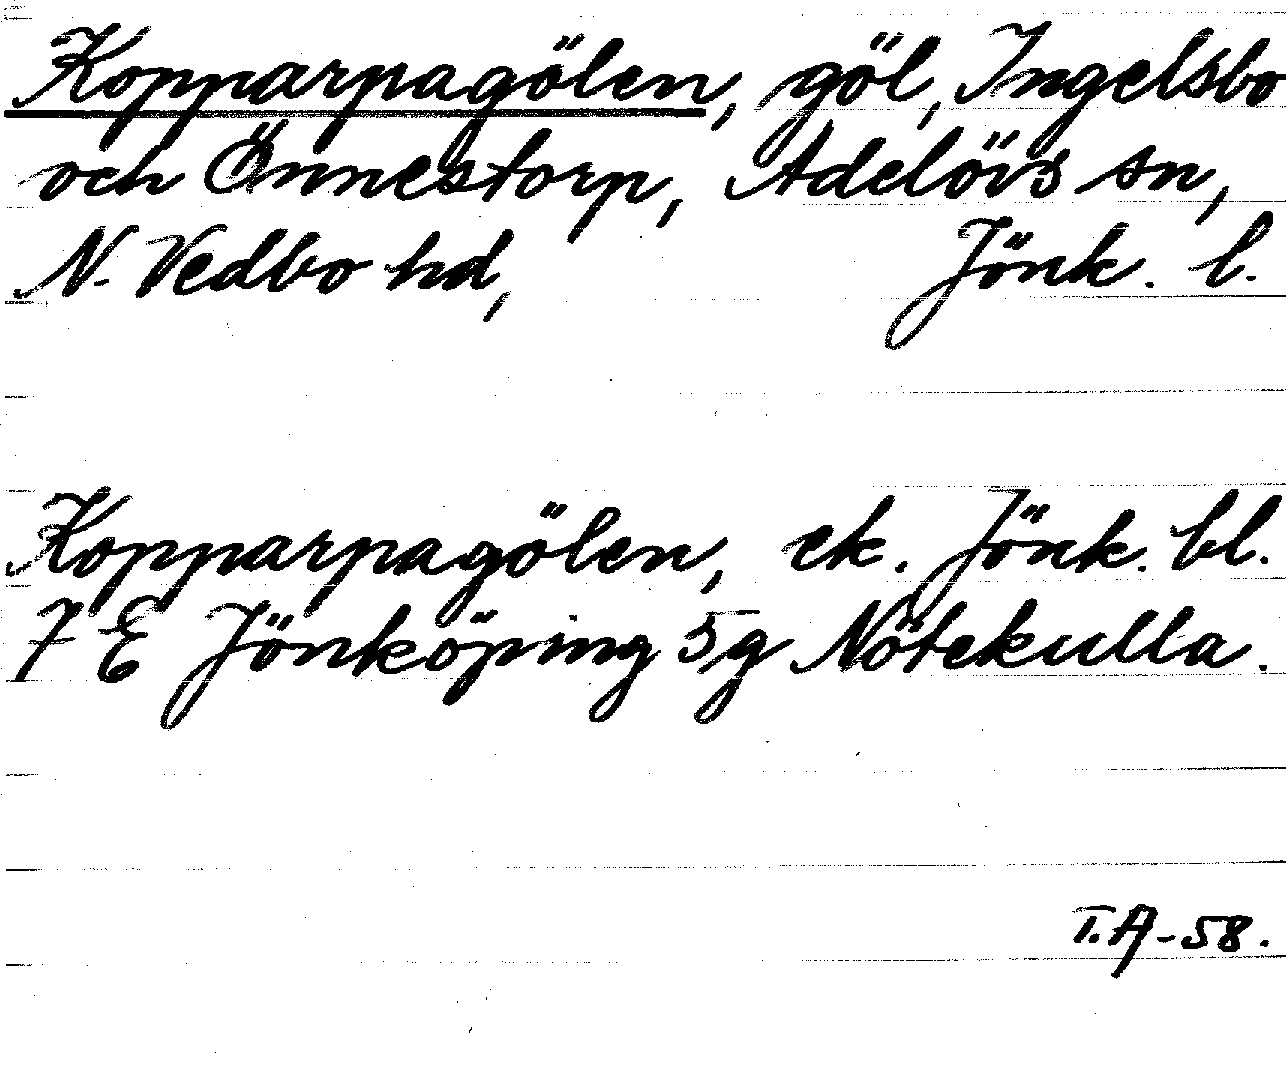 Kopparpagölen, göl, Ingelsbo
och Önnestorp, Adelövs sn,
N. Vedbo hd, Jönk. l.
Kopparpagölen, ek. Jönk. bl.
7 E Jönköping 5g Nötekulla.
T.A-58.